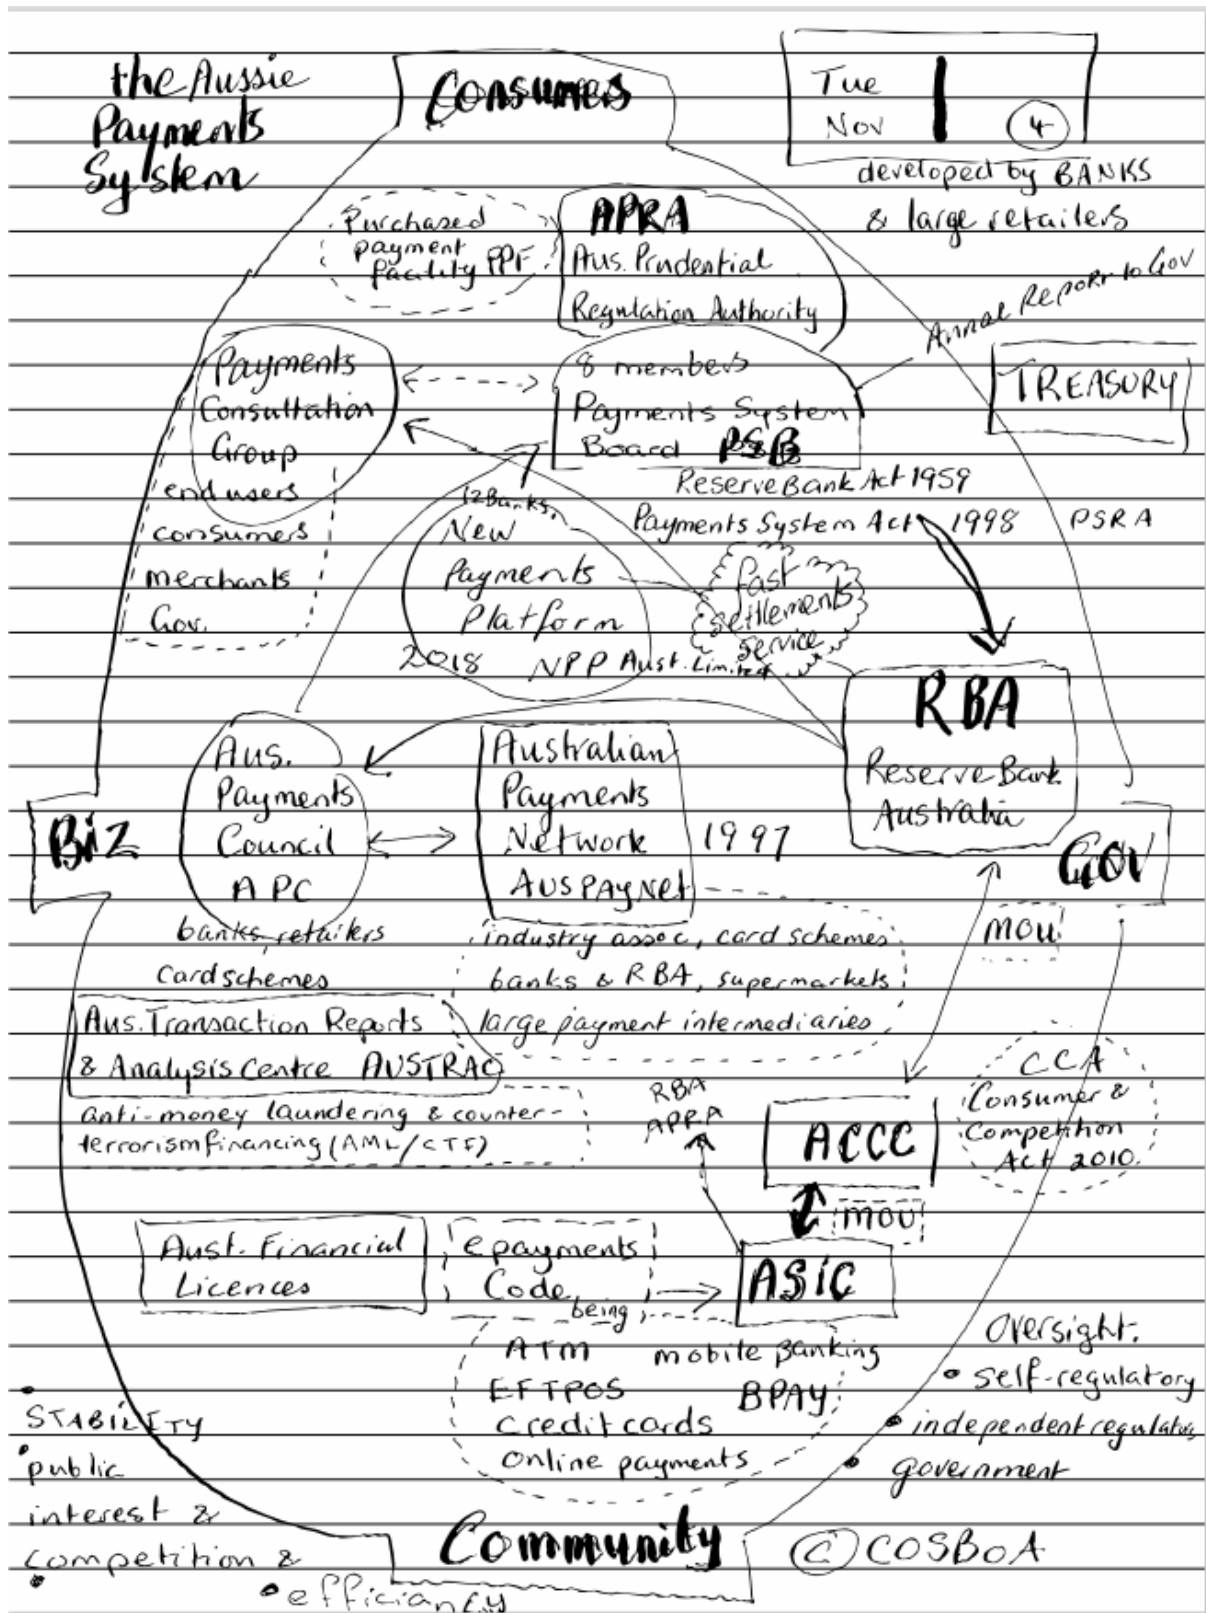 the Aussie
Payments
System
Consumers
Tue
Nov
1
4
developed by BANKS
& large retailers
Purchased
payment
facility PPF
APRA
Aus. Prudential
Regulation Authority
Annal Report to Gov
TREASURY
Payments
Consultation
Group
end users
consumers
merchants
Gov.
8 members
Payments System
Board PSB
Reserve Bank Act 1959
Payments System Act 1998 PSRA
12 Banks.
New
Payments
Platform
2018 NPP Aust. Limited
fast
settlements
service
RBA
Reserve Bank
Australia
Biz
Aus.
Payments
Council
APC
banks, retailers
card schemes
Australian
Payments
Network
AUSPAYNET
1997
GOV
MOU
industry assoc, card schemes
banks & RBA, supermarkets
large payment intermediaries
Aus. Transaction Reports
& Analysis Centre AUSTRAC
anti-money laundering & counter-
terrorism financing (AML/CTF)
RBA
APRA
ACCC
CCA
Consumer &
Competition
Act 2010
MOU
Aust. Financial
Licences
epayments
Code
being
ASIC
ATM mobile Banking
EFTPOS BPAY
Credit cards
Online payments
Oversight.
• self-regulatory
• independent regulators
• government
• STABILITY
• public
interest &
competition &
• efficiancy
Community
© COSBOA